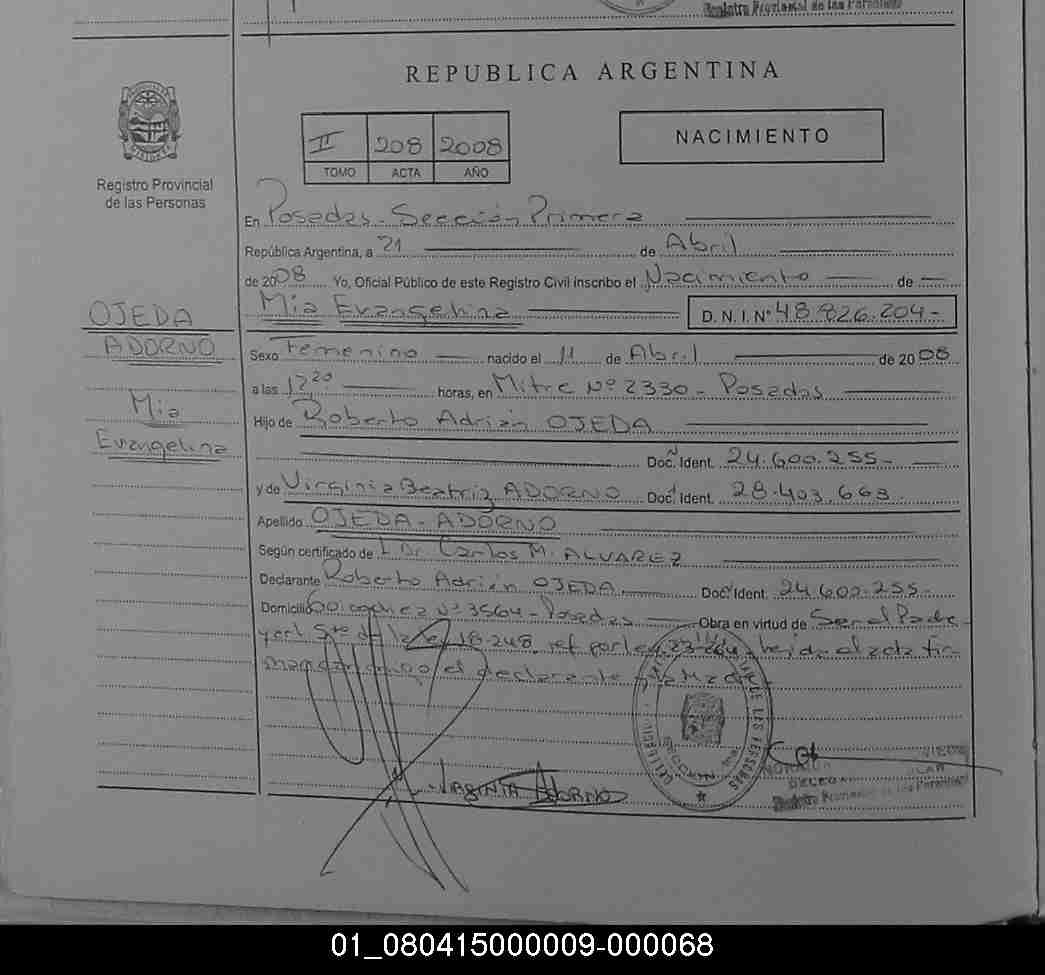 Registro Provincial de las Personas
REPUBLICA ARGENTINA
II 208 2008
TOMO ACTA AÑO
NACIMIENTO
Registro Provincial
de las Personas
En Posadas - Sección Primera
República Argentina, a 21 de Abril
de 2008 Yo, Oficial Público de este Registro Civil inscribo el Nacimiento de
Mia Evangelina D.N.I. Nº 48.826.204-
OJEDA
ADORNO
Mia
Evangelina
Sexo Femenino nacido el 11 de Abril de 2008
a las 12 20 horas, en Mitre Nº 2330 - Posadas
Hijo de Roberto Adrián OJEDA
Doc. Ident. 24.600.255-
y de Virginia Beatriz ADORNO Doc. Ident. 28.403.663
Apellido OJEDA - ADORNO
Según certificado de Dr Carlos M. ALVAREZ
Declarante Roberto Adrián OJEDA Doc. Ident. 24.600.255-
Domicilio Nº 3564 - Posadas Obra en virtud de Ser el Padre
y art 5to de la ley 18.248, ref por ley leida el acta fir
el declarante y la Madre
VIRGINIA ADORNO
DE LAS PERSONAS
Registro Provincial de las Personas
01_080415000009-000068